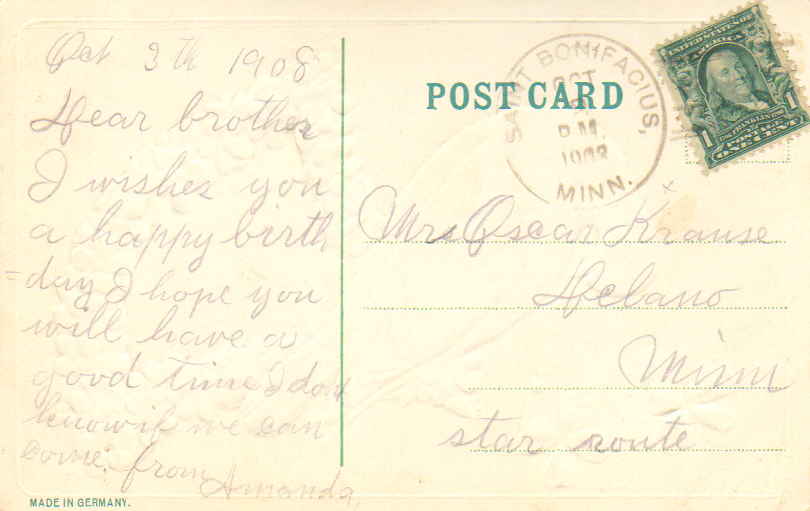 Oct 3th 1908
Dear brother
I wishes you
a happy birth
=day I hope you
will have a
good time I dont
know if we can
come. from
Amanda,
MADE IN GERMANY.
POST CARD
SAINT BONIFACIUS,
OCT
P.M.
1908
MINN.
UNITED STATES OF
AMERICA
1 FRANKLIN 1
POSTAGE
ONE CENT
Mrs Oscar Krause
Delano
Minn
star route